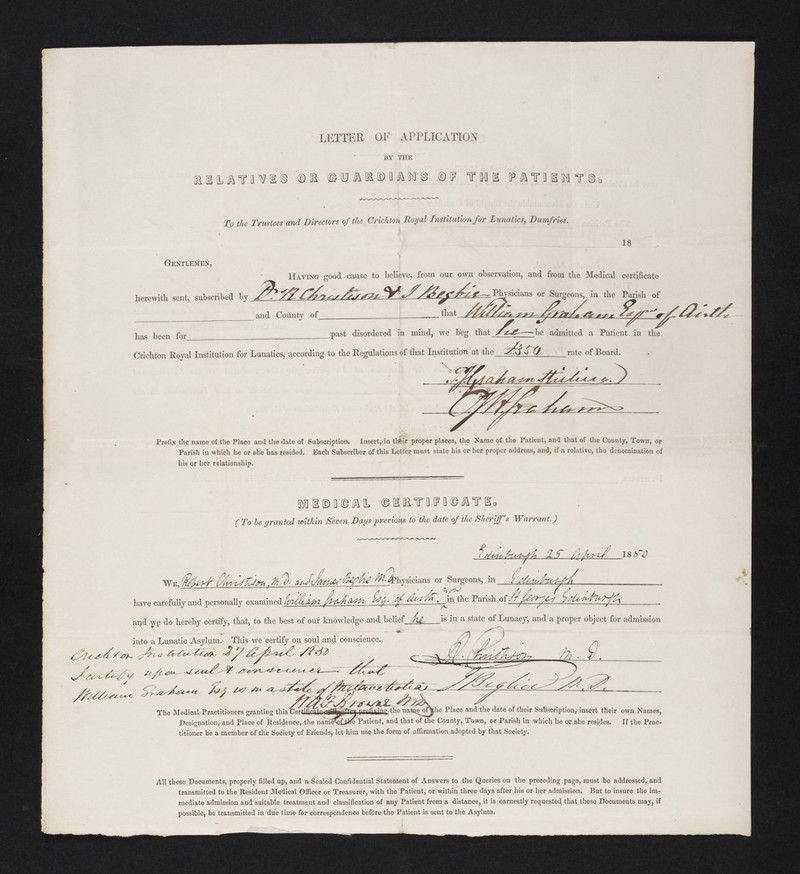 LETTER OF APPLICATION
BY THE
RELATIVES OR GUARDIANS OF THE PATIENTS.
To the Trustees and Directors of the Crichton Royal Institution for Lunatics, Dumfries.
18
GENTLEMEN,
HAVING good cause to believe, from our own observation, and from the Medical certificate
herewith sent, subscribed by Dr. R Christison & J Begbie Physicians or Surgeons, in the Parish of
and County of that William Graham Esqr of Airth
has been for past disordered in mind, we beg that he be admitted a Patient in the
Crichton Royal Institution for Lunatics, according to the Regulations of that Institution at the £350 rate of Board.
Graham Stirling
Graham
Prefix the name of the Place and the date of Subscription. Insert, in their proper places, the Name of the Patient, and that of the County, Town, or
Parish in which he or she has resided. Each Subscriber of this Letter must state his or her proper address, and, if a relative, the denomination of
his or her relationship.
MEDICAL CERTIFICATE.
(To be granted within Seven Days previous to the date of the Sheriff's Warrant.)
Edinburgh 25 April 1850
WE, Robert Christison, M.D. and James Begbie M.D. Physicians or Surgeons, in Edinburgh
have carefully and personally examined William Graham Esq. of Airth, now in the Parish of St Georges Edinburgh
and we do hereby certify, that, to the best of our knowledge and belief he is in a state of Lunacy, and a proper object for admission
into a Lunatic Asylum. This we certify on soul and conscience.
Crichton Institution 27 April 1850
R. Christison M.D.
I certify upon soul & conscience that
William Graham Esq is in a state of Melancholia
J Begbie M.D.
W A F Browne M.D.
The Medical Practitioners granting this Certificate will, after prefixing the name of the Place and the date of their Subscription, insert their own Names,
Designation, and Place of Residence, the name of the Patient, and that of the County, Town, or Parish in which he or she resides. If the Prac-
titioner be a member of the Society of Friends, let him use the form of affirmation adopted by that Society.
All these Documents, properly filled up, and a Sealed Confidential Statement of Answers to the Queries on the preceding page, must be addressed, and
transmitted to the Resident Medical Officer or Treasurer, with the Patient, or within three days after his or her admission. But to insure the im-
mediate admission and suitable treatment and classification of any Patient from a distance, it is earnestly requested that these Documents may, if
possible, be transmitted in due time for correspondence before the Patient is sent to the Asylum.